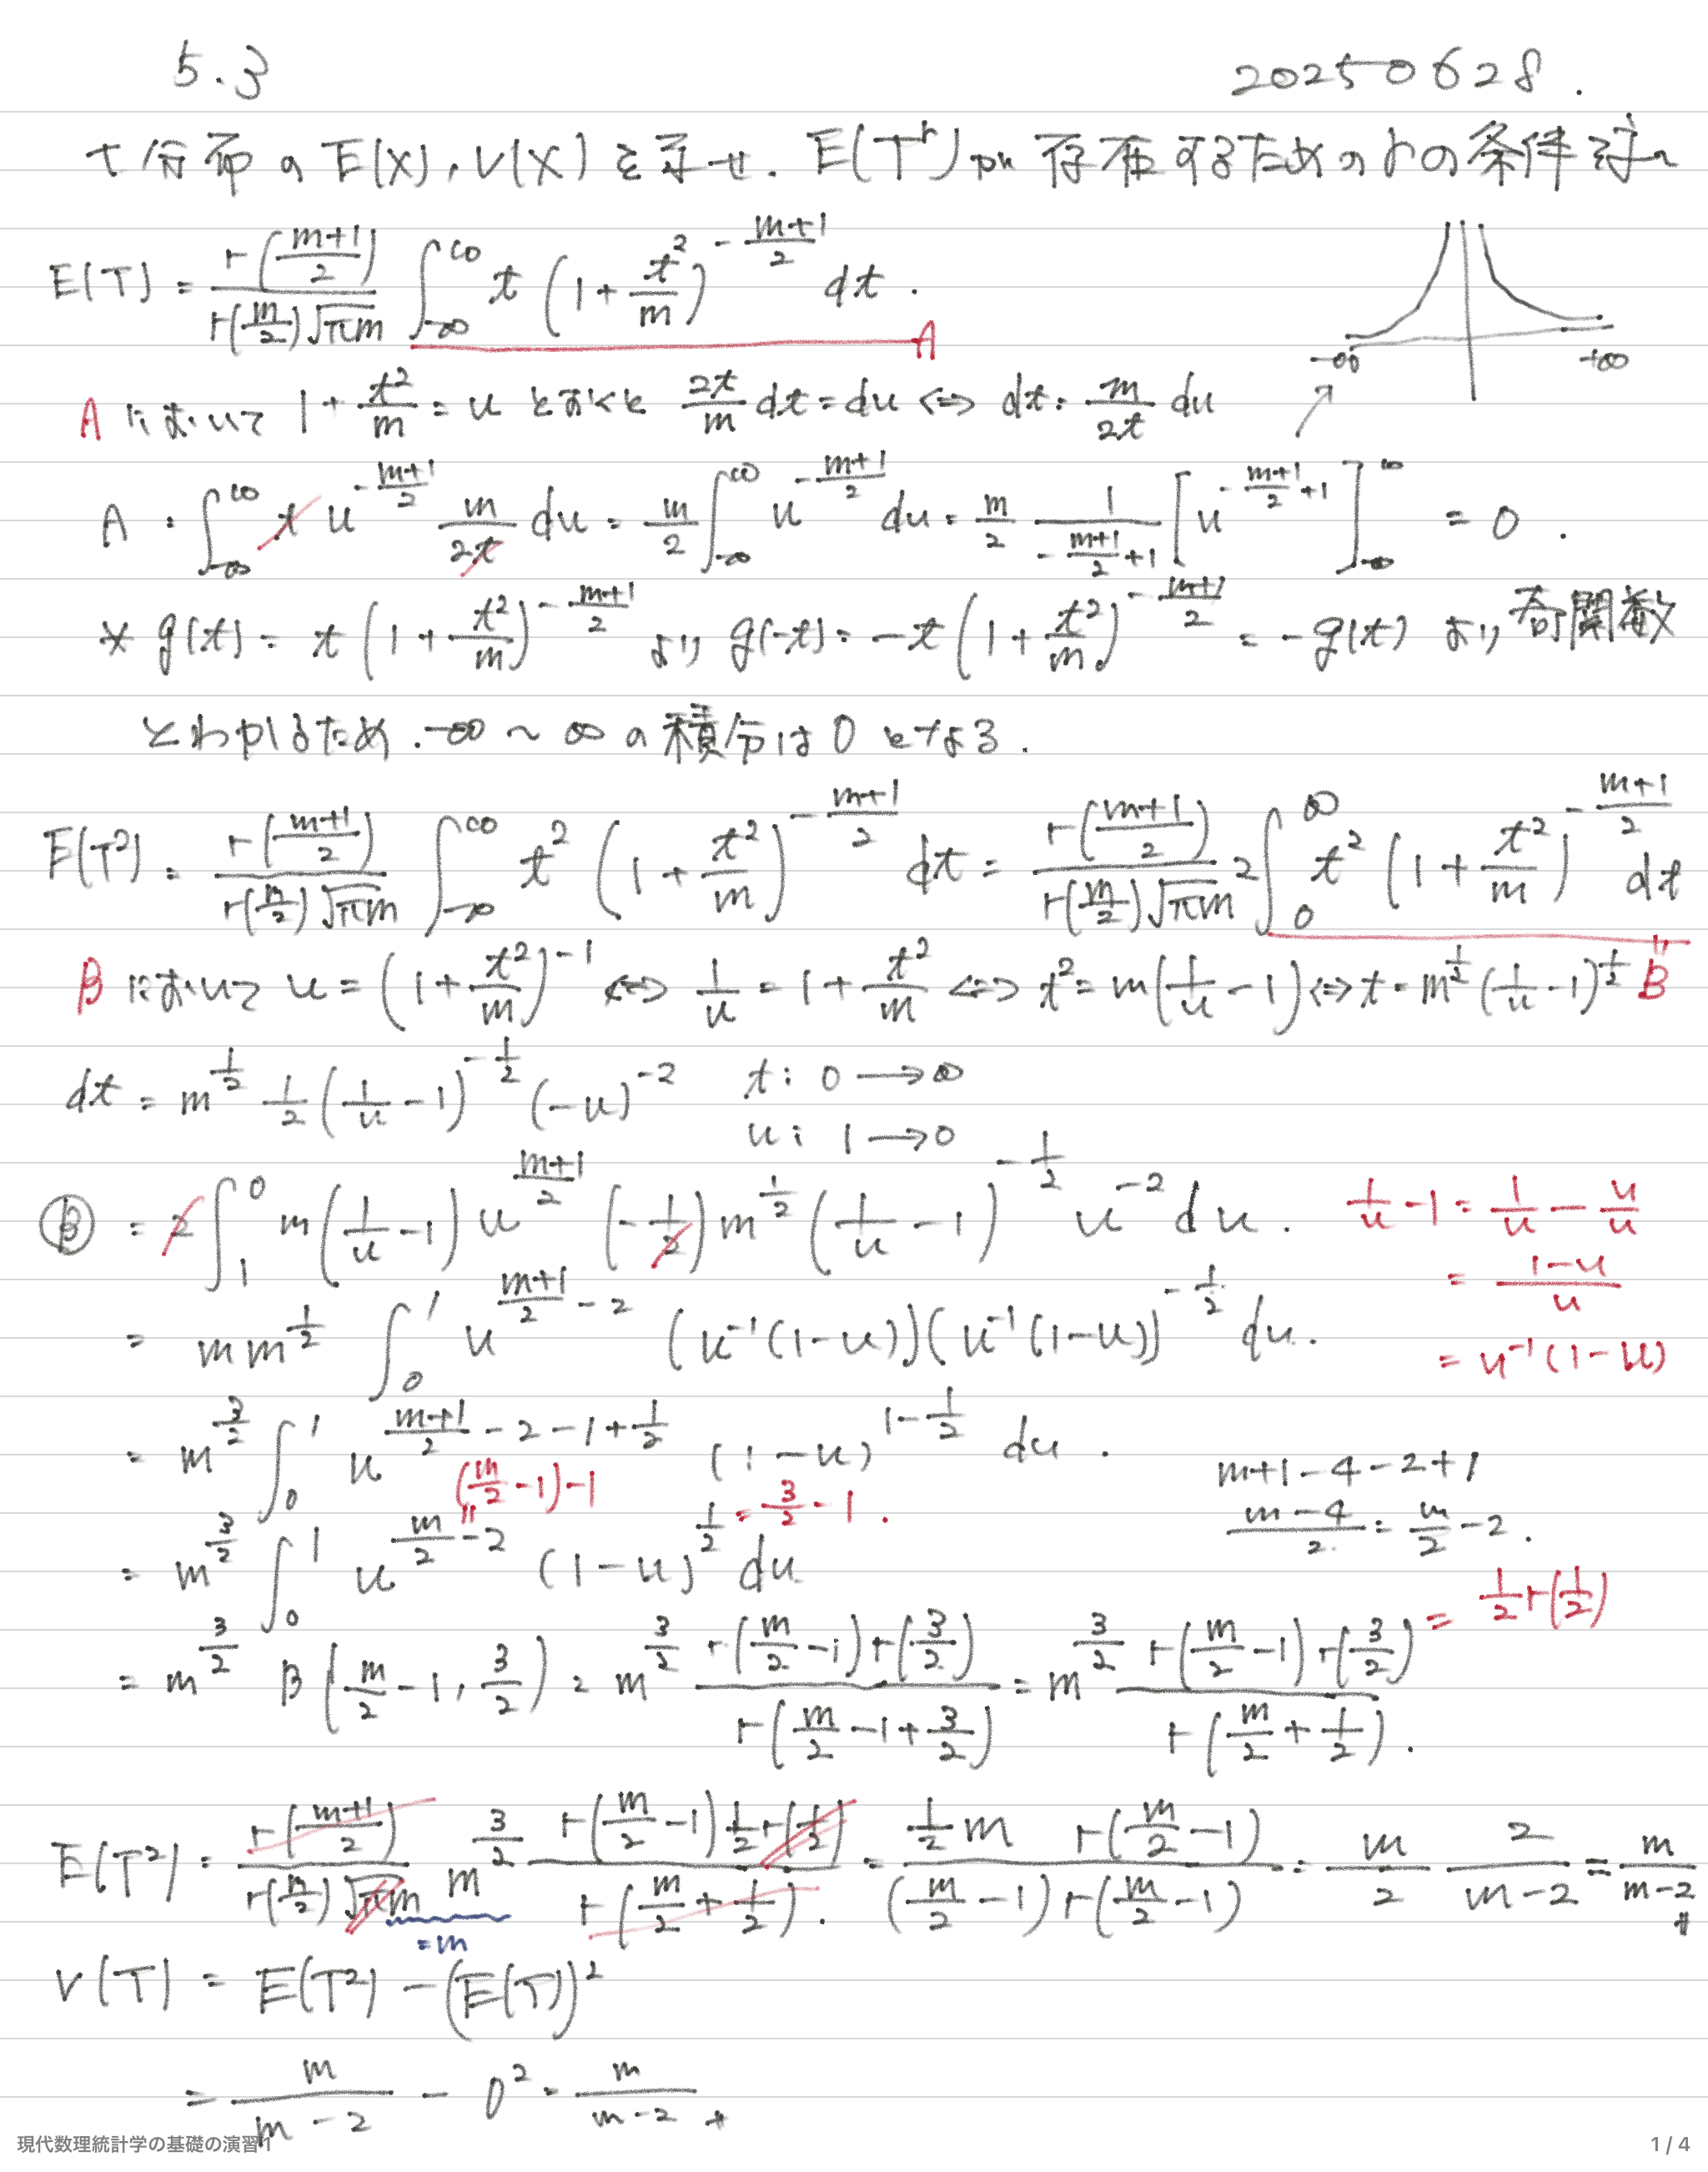 5.3 20250628.
t分布の E(X), V(X) を示せ. E(T^r) が 存在するためのrの条件
E(T) = Γ((m+1)/2) / (Γ(m/2)√(πm)) ∫_{-∞}^{∞} t (1 + t²/m)^{-(m+1)/2} dt . A
-∞ +∞
A において 1 + t²/m = u とおくと 2t/m dt = du ⇔ dt = m/2t du
A = ∫_{-∞}^{∞} t u^{-(m+1)/2} m/2t du = m/2 ∫_{-∞}^{∞} u^{-(m+1)/2} du = m/2 1/(-(m+1)/2 + 1) [u^{-(m+1)/2 + 1}]_{-∞}^{∞} = 0 .
※ g(t) = t (1 + t²/m)^{-(m+1)/2} より g(-t) = -t (1 + t²/m)^{-(m+1)/2} = -g(t) より 奇関数
とわかるため. -∞ ~ ∞ の積分は 0 となる.
E(T²) = Γ((m+1)/2) / (Γ(m/2)√(πm)) ∫_{-∞}^{∞} t² (1 + t²/m)^{-(m+1)/2} dt = Γ((m+1)/2) / (Γ(m/2)√(πm)) 2∫_0^∞ t² (1 + t²/m)^{-(m+1)/2} dt
B において u = (1 + t²/m)^{-1} ⇔ 1/u = 1 + t²/m ⇔ t² = m(1/u - 1) ⇔ t = m^{1/2} (1/u - 1)^{1/2} " B
dt = m^{1/2} 1/2 (1/u - 1)^{-1/2} (-u)^{-2} t : 0 → ∞
u : 1 → 0
Ⓑ = 2∫_1^0 m(1/u - 1) u^{(m+1)/2} (-1/2) m^{1/2} (1/u - 1)^{-1/2} u^{-2} du . 1/u - 1 = 1/u - u/u
= (1-u)/u
= m m^{1/2} ∫_0^1 u^{(m+1)/2 - 2} (u^{-1}(1-u))(u^{-1}(1-u))^{-1/2} du . = u^{-1}(1-u)
= m^{3/2} ∫_0^1 u^{(m+1)/2 - 2 - 1 + 1/2} (1-u)^{1 - 1/2} du . m+1-4-2+1
(m/2 - 1) - 1 = 3/2 - 1 . (m-4)/2 = m/2 - 2 .
= m^{3/2} ∫_0^1 u^{m/2 - 2} (1-u)^{1/2} du
= 1/2 Γ(1/2)
= m^{3/2} B(m/2 - 1, 3/2) = m^{3/2} Γ(m/2 - 1)Γ(3/2) / Γ(m/2 - 1 + 3/2) = m^{3/2} Γ(m/2 - 1)Γ(3/2) / Γ(m/2 + 1/2) .
E(T²) = Γ((m+1)/2) / (Γ(m/2)√(πm)) m^{3/2} Γ(m/2 - 1) 1/2 Γ(1/2) / Γ(m/2 + 1/2) . = 1/2 m Γ(m/2 - 1) / ((m/2 - 1)Γ(m/2 - 1)) = m/2 2/(m-2) = m/(m-2) #
= m
V(T) = E(T²) - (E(T))²
= m/(m-2) - 0² = m/(m-2) #
現代数理統計学の基礎の演習1 1 / 4